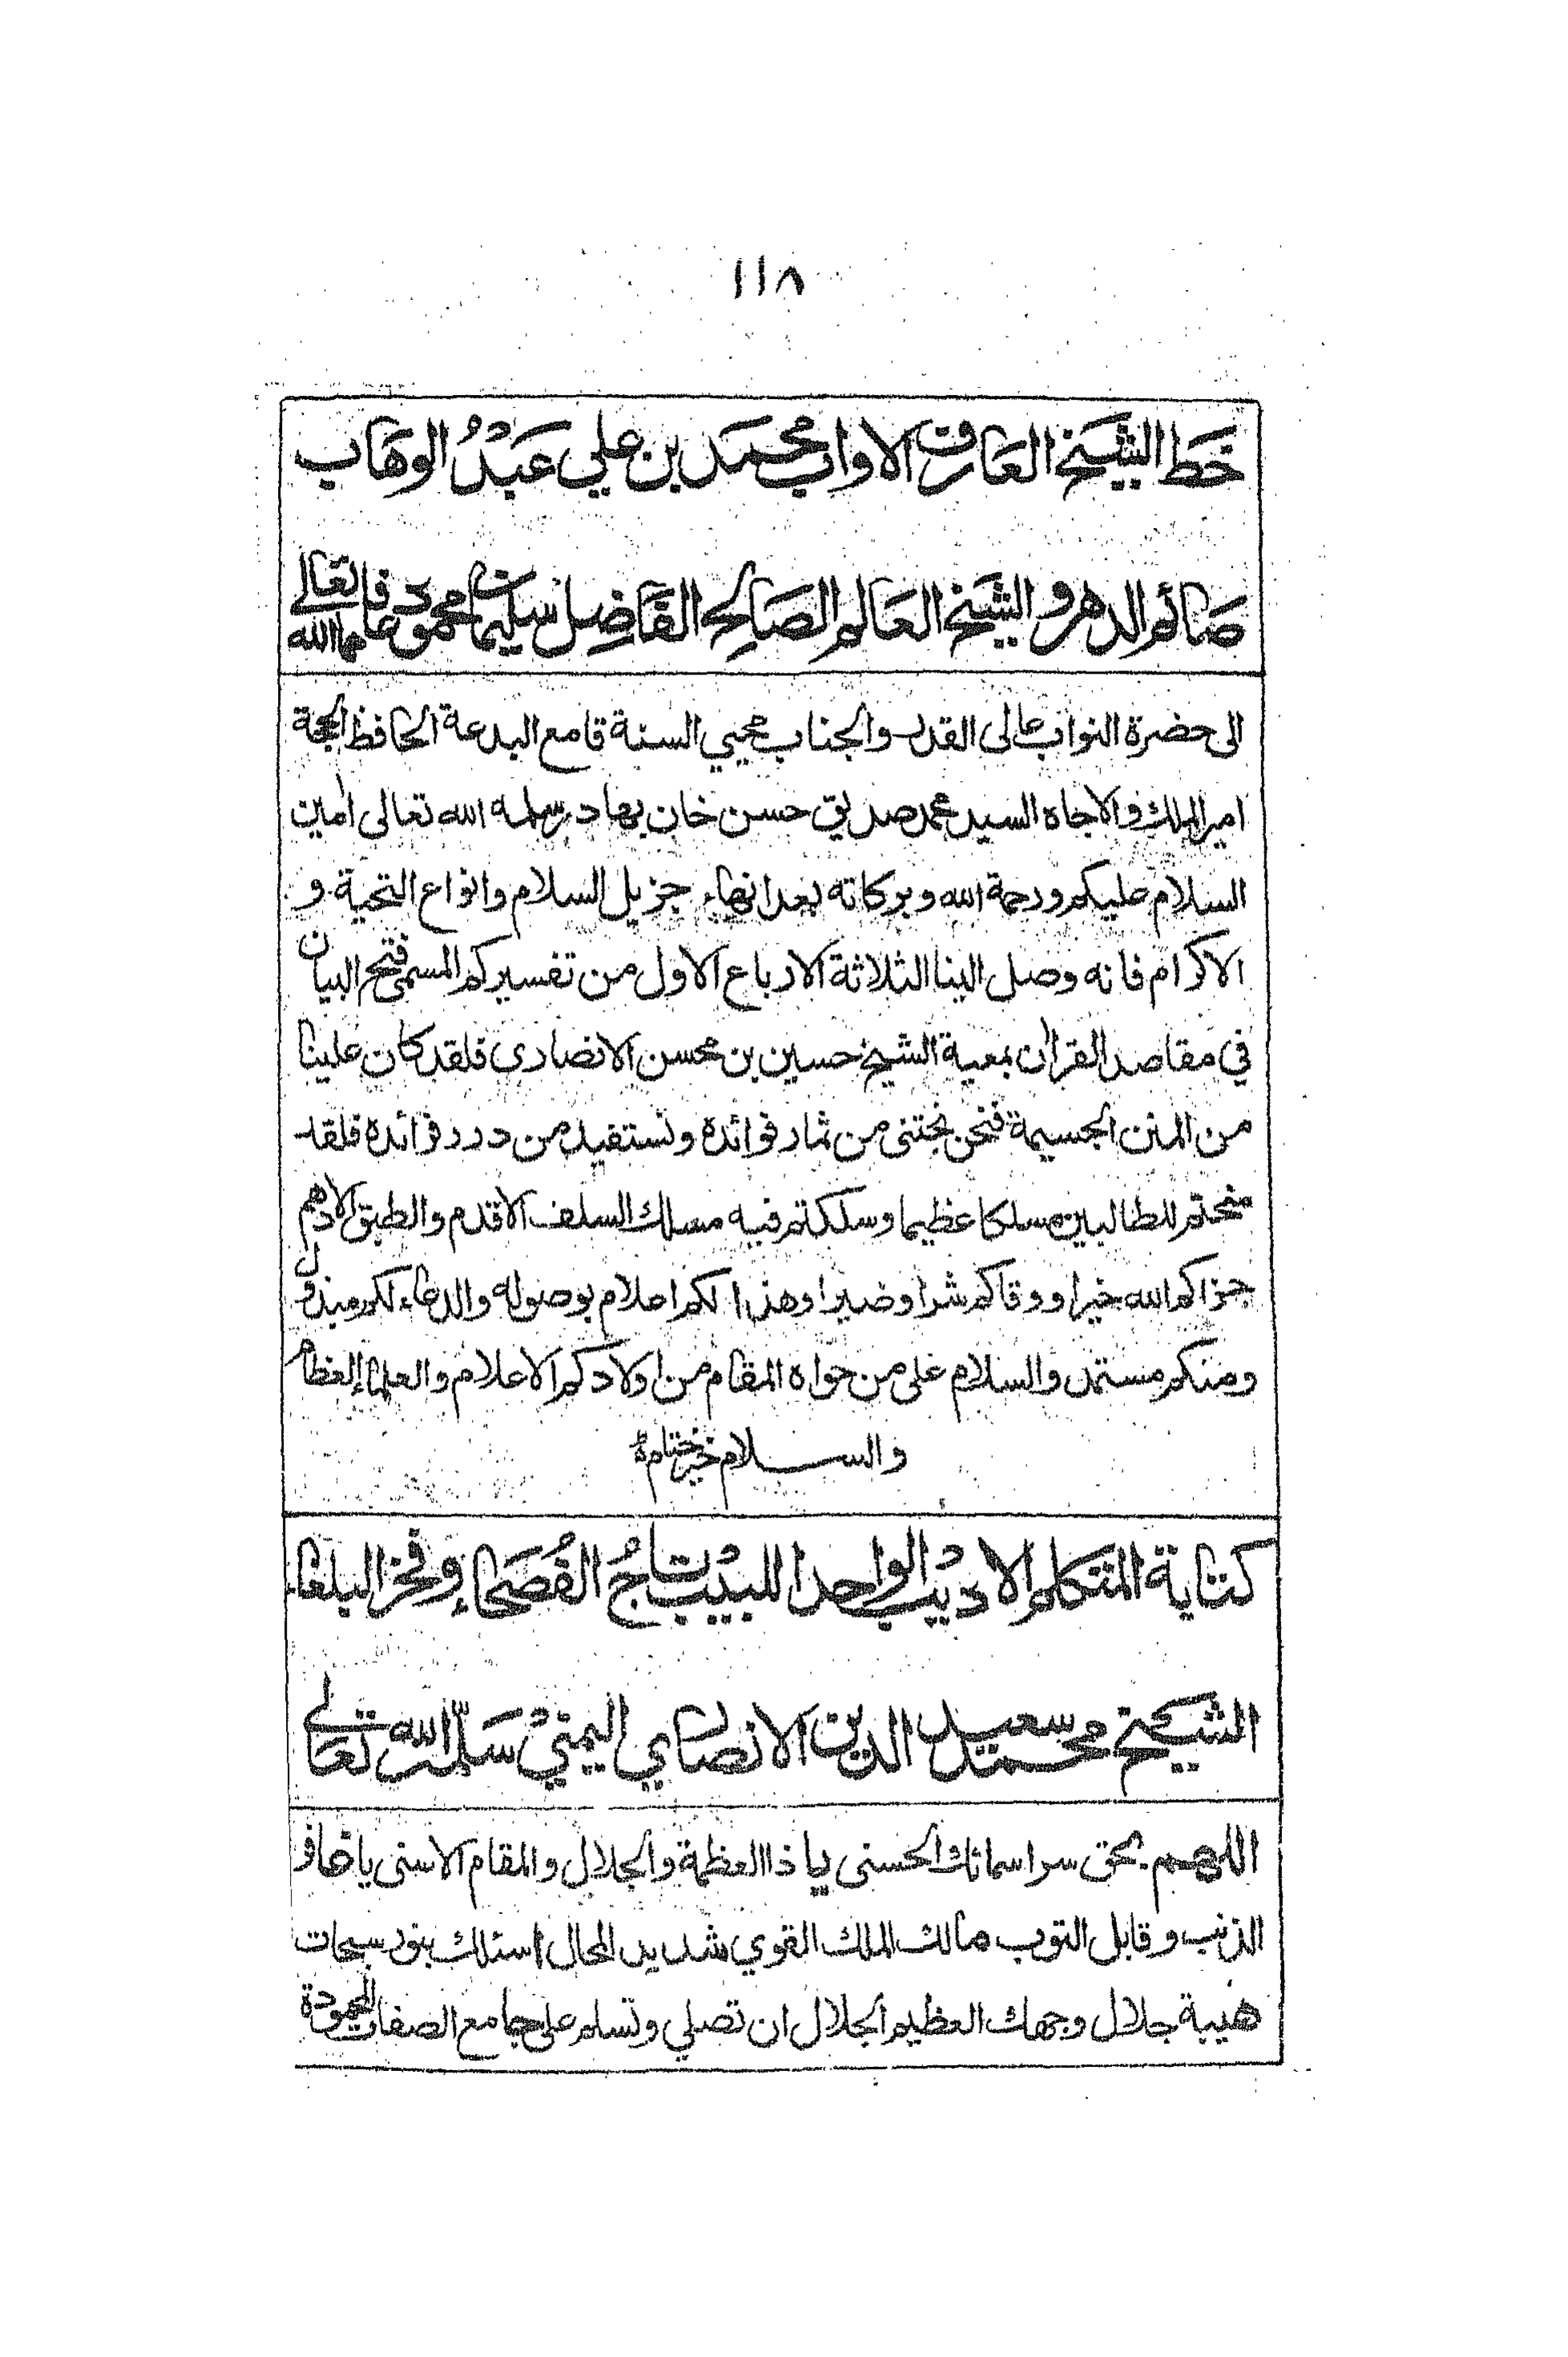 ١١٨
خط الشيخ العارف الاواب محمد بن علي عبدُ الوهاب
صائم الدهر و الشيخ العالم الصالح الفاضل سليمان محمود عافاهما الله تعالى
الى حضرة النواب عالى القدر والجناب محيي السنة قامع البدعة الحافظ الحجة
امير الملك والاجاه السيد محمد صديق حسن خان بهادر سلمه الله تعالى اٰمين
السلام عليكم ورحمة الله وبركاته بعد انهاء جزيل السلام وانواع التحية و
الاكرام فانه وصل الينا الثلاثة الارباع الاول من تفسيركم المسمى فتح البيان
في مقاصد القراٰن بمعية الشيخ حسين بن محسن الانصاري فلقد كان علينا
من المنن الجسيمة فنحن نجتنى من ثمار فوائده ونستفيد من درر فرائده فلقد
منحتم للطالبين مسلكا عظيما وسلكتم فيه مسلك السلف الاقدم والطبق الادهم
جزاكم الله خيرا ووقاكم شرا وضيرا وهذا لكم اعلام بوصوله والدعاء لكم مبذول
ومنكم مستمد والسلام على من حواه المقام من اولادكم الاعلام والعلماء العظام
والسلام خير ختام
كتابة المتكلم الاديب الواحد اللبيب تاجُ الفُصَحاءِ وفخر البلغاء
الشيخ محمد سعيد الدين الانصاري اليمني سَلَّمه الله تعالى
اللهم بحق سر اسمائك الحسنى يا ذا العظمة والجلال والمقام الاسنى يا غافر
الذنب وقابل التوب مالك الملك القوي شديد المحال اسئلك بنور سبحات
هيبة جلال وجهك العظيم الجلال ان تصلي وتسلم على جامع الصفات المحمودة